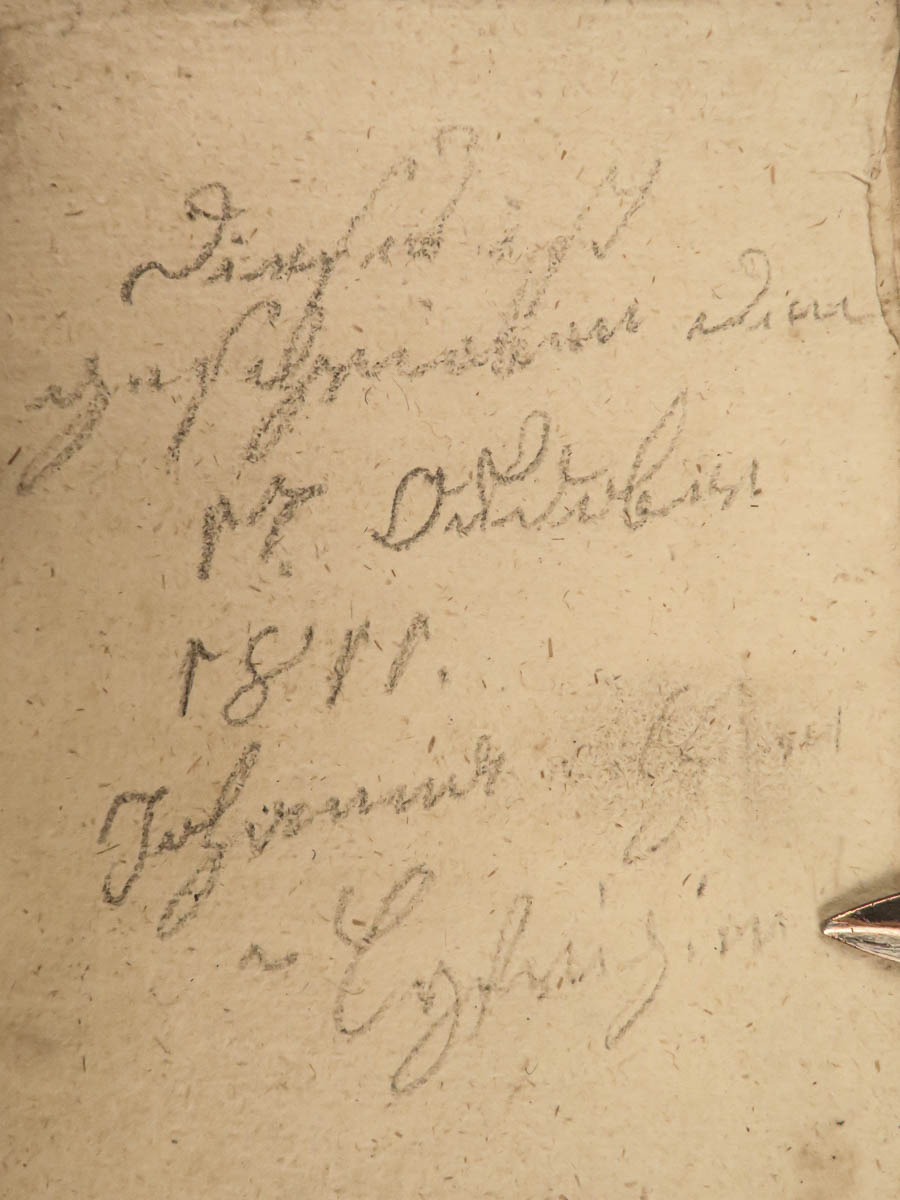 Dieses ist
geschrieben den
17 October
1811.
Johannes